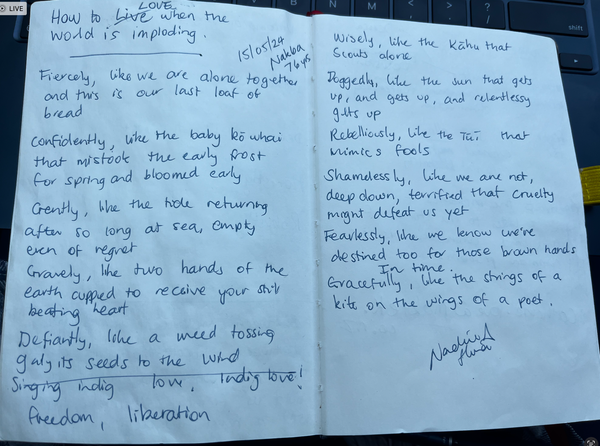 LIVE
LOVE
How to Live when the
world is imploding.
15/05/24
Nakba
76 yrs
Fiercely, like we are alone together
and this is our last loaf of
bread
Confidently, like the baby kōwhai
that mistook the early frost
for spring and bloomed early
Gently, like the hole returning
after so long at sea, empty
even of regret
Gravely, like two hands of the
earth cupped to receive your still
beating heart
Defiantly, like a weed tossing
galy its seeds to the wind
Singing indig love, Indig love!
freedom, liberation
Wisely, like the Kāhu that
scouts alone
Doggedly, like the sun that gets
up, and gets up, and relentlessy
gets up
Rebelliously, like the Tūī that
mimics fools
Shamelessly, like we are not,
deep down, terrified that cruelty
might defeat us yet
Fearlessly, like we know we're
destined too for those brown hands
In time.
Gracefully, like the strings of a
kite on the wings of a poet.
shift